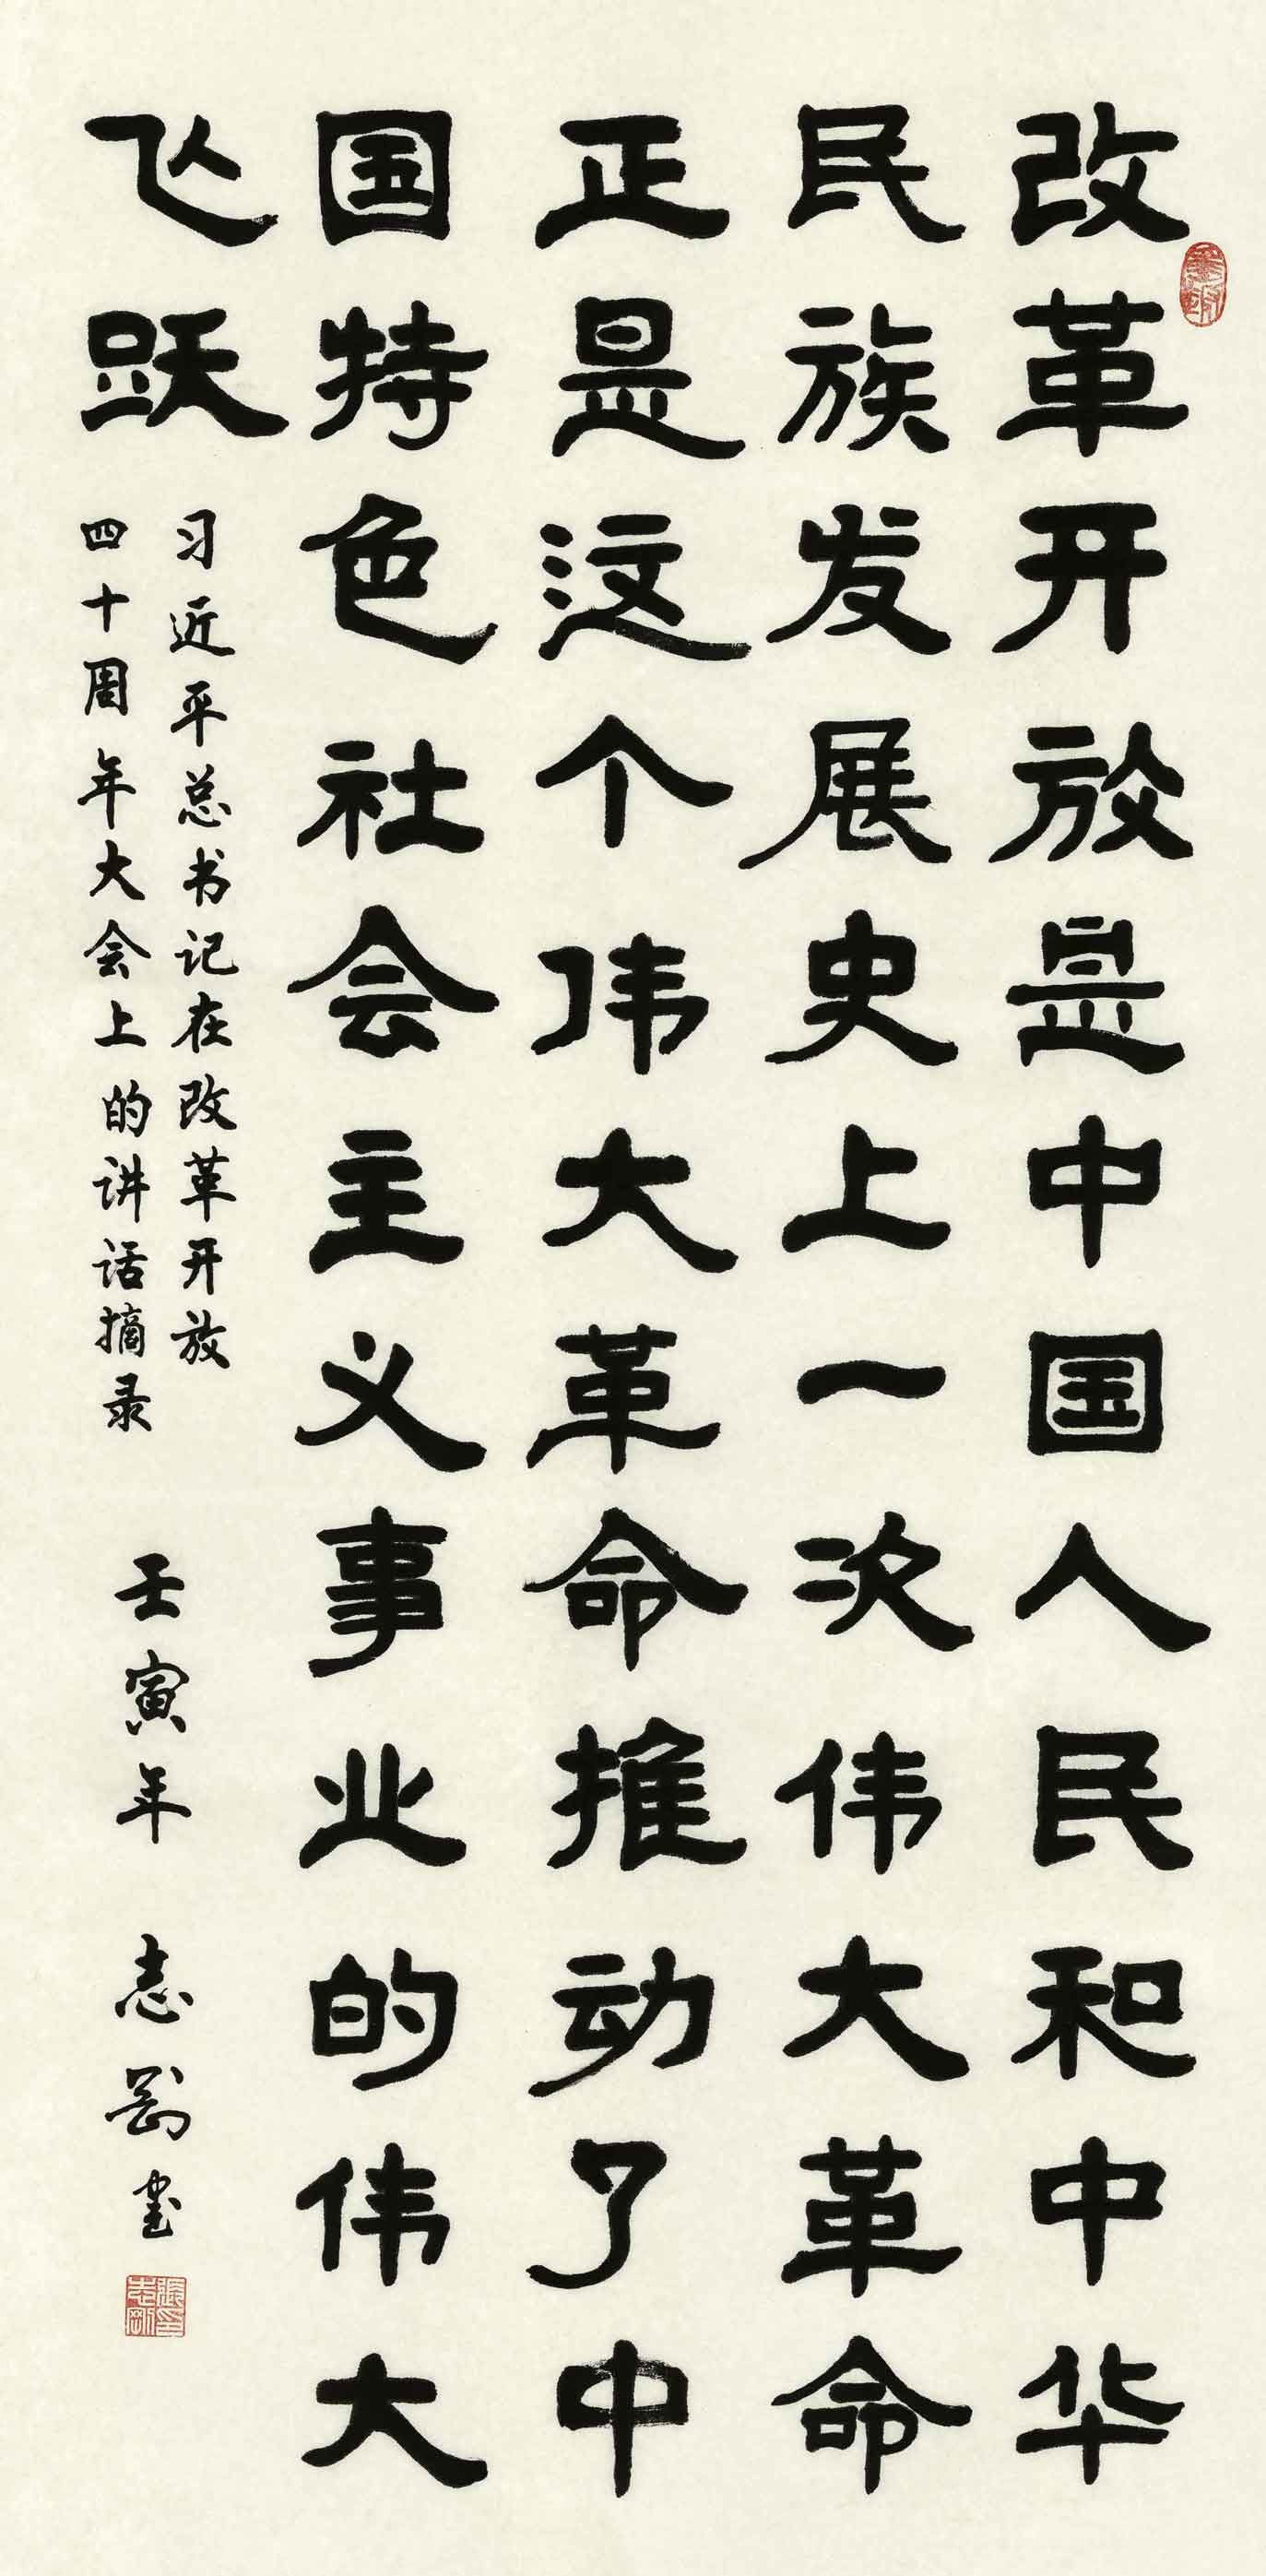 改革开放是中国人民和中华
民族发展史上一次伟大革命
正是这个伟大革命推动了中
国特色社会主义事业的伟大
飞跃
习近平总书记在改革开放
四十周年大会上的讲话摘录
壬寅年 志刚书